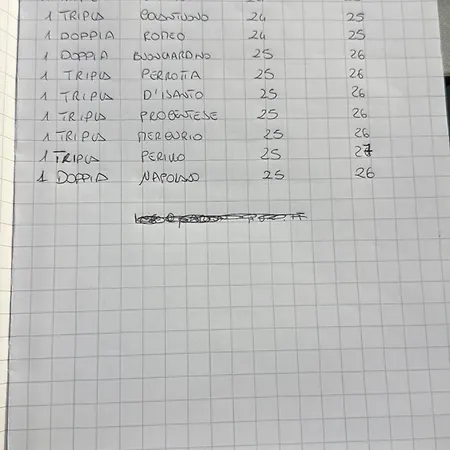 1 TRIPLA 24 25
1 DOPPIA ROMEO 24 25
1 DOPPIA BUONGIARDINO 25 26
1 TRIPLA PERROTTA 25 26
1 TRIPLA D'ISANTO 25 26
1 TRIPLA PROCENTESE 25 26
1 TRIPLA MERCURIO 25 26
1 TRIPLA PERILLO 25 27
1 DOPPIA NAPOLANO 25 26